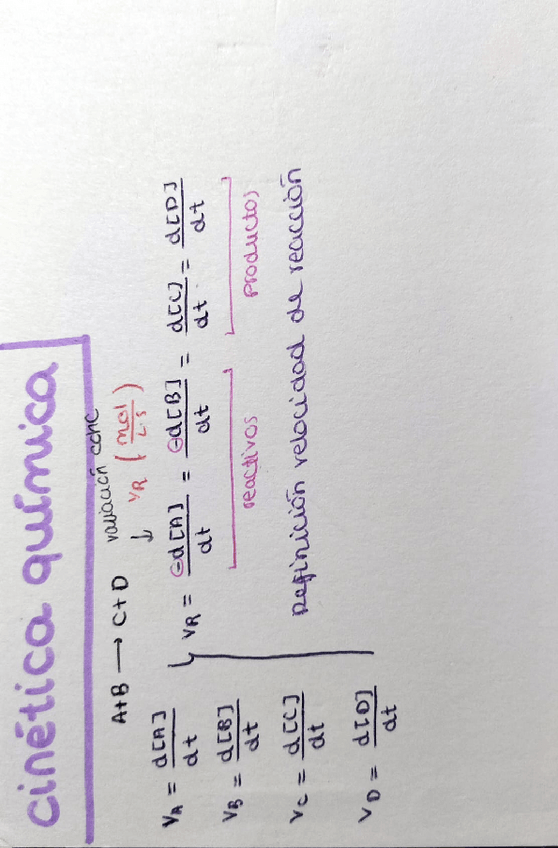 cinética química
A+B → C+D variación conc
↓ VR (mol/L·s)
VA = d[A]/dt
VB = d[B]/dt
VC = d[C]/dt
VD = d[D]/dt
VR = ⊖d[A]/dt = ⊖d[B]/dt = d[C]/dt = d[D]/dt
reactivos productos
Definición velocidad de reacción